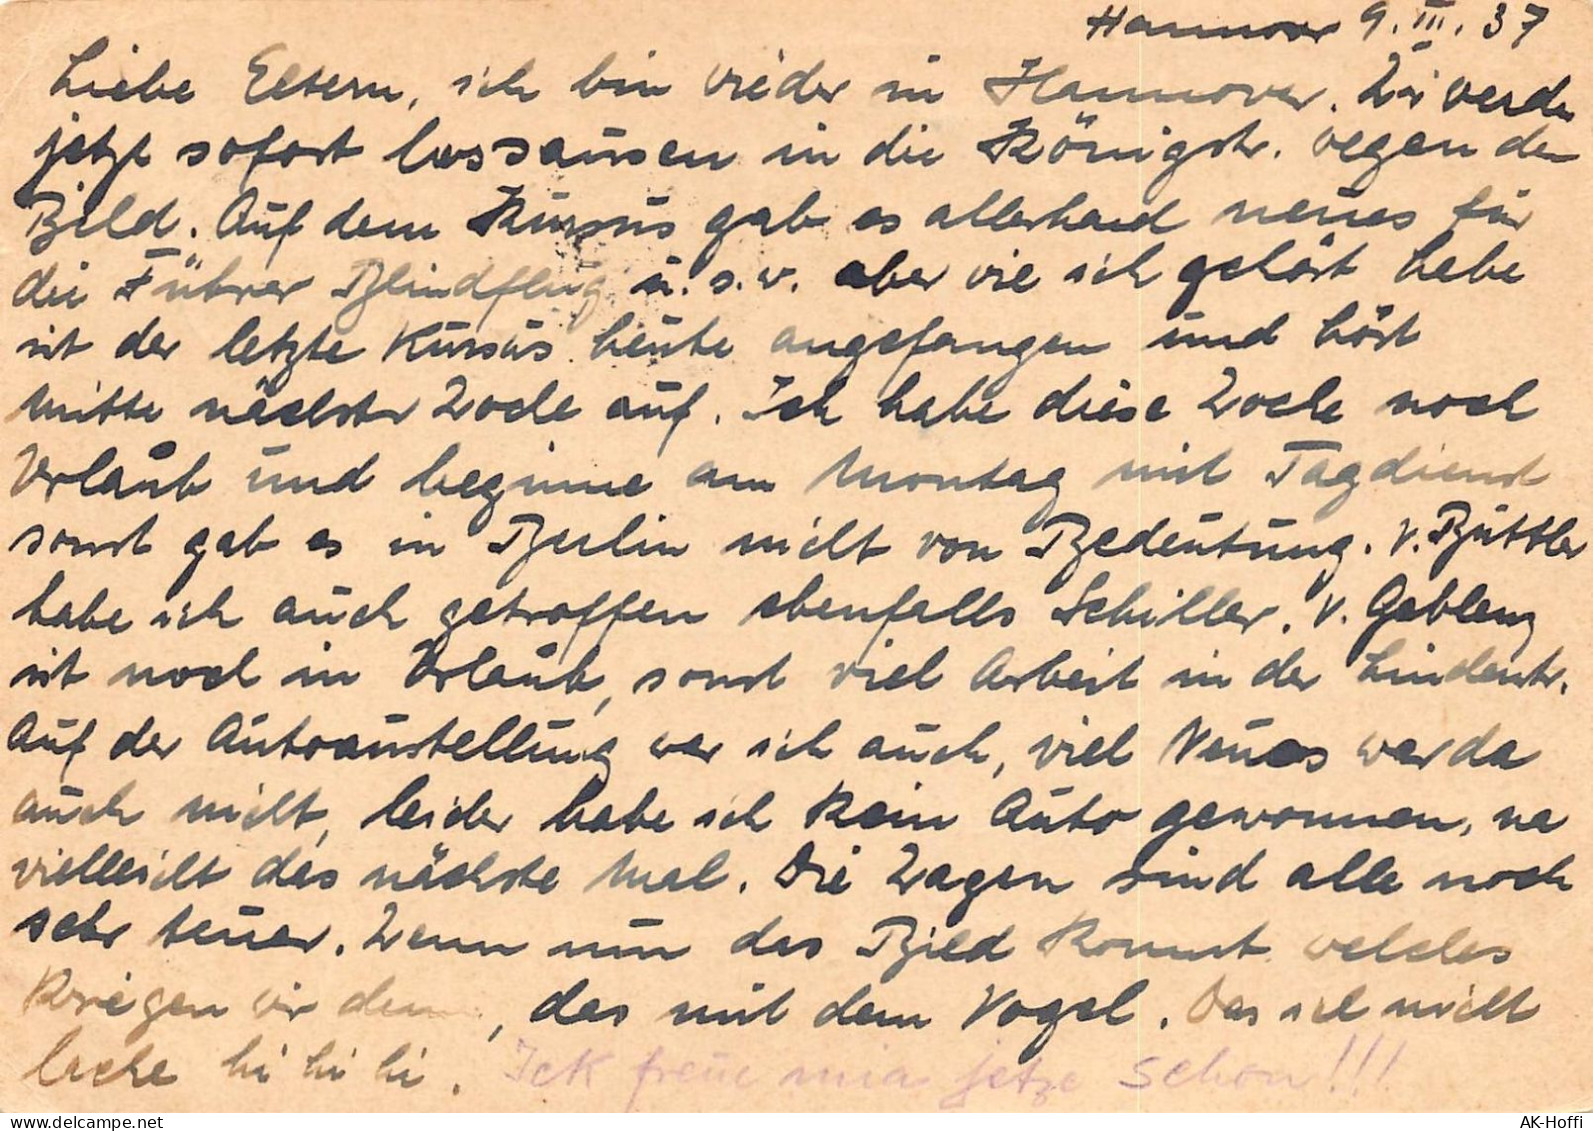 Hannover 9. III. 37
Liebe Eltern, ich bin wieder in Hannover. Wir werden
jetzt sofort lossausen in die Königstr. wegen dem
Bild. Auf dem Kursus gab es allerhand neues für
die Führer Blindflug u.s.w. aber wie ich gehört habe
ist der letzte Kursus heute angefangen und hört
Mitte nächster Woche auf. Ich habe diese Woche noch
Urlaub und beginne am Montag mit Tagdienst
sonst gab es in Berlin nicht von Bedeutung. v. Buttler
habe ich auch getroffen ebenfalls Schiller. v. Gablenz
ist noch in Urlaub, sonst viel Arbeit in der Lindenstr.
Auf der Autoaustellung war ich auch, viel Neues war da
auch nicht, leider habe ich kein Auto gewonnen, na
vielleicht das nächste Mal. Die Wagen sind alle noch
sehr teuer. Wenn nun das Bild kommt welches
kriegen wir denn, das mit dem Vogel. Das ich nicht
lache hi hi hi. Ick freue mia jetze schon!!!
AK-Hoffi